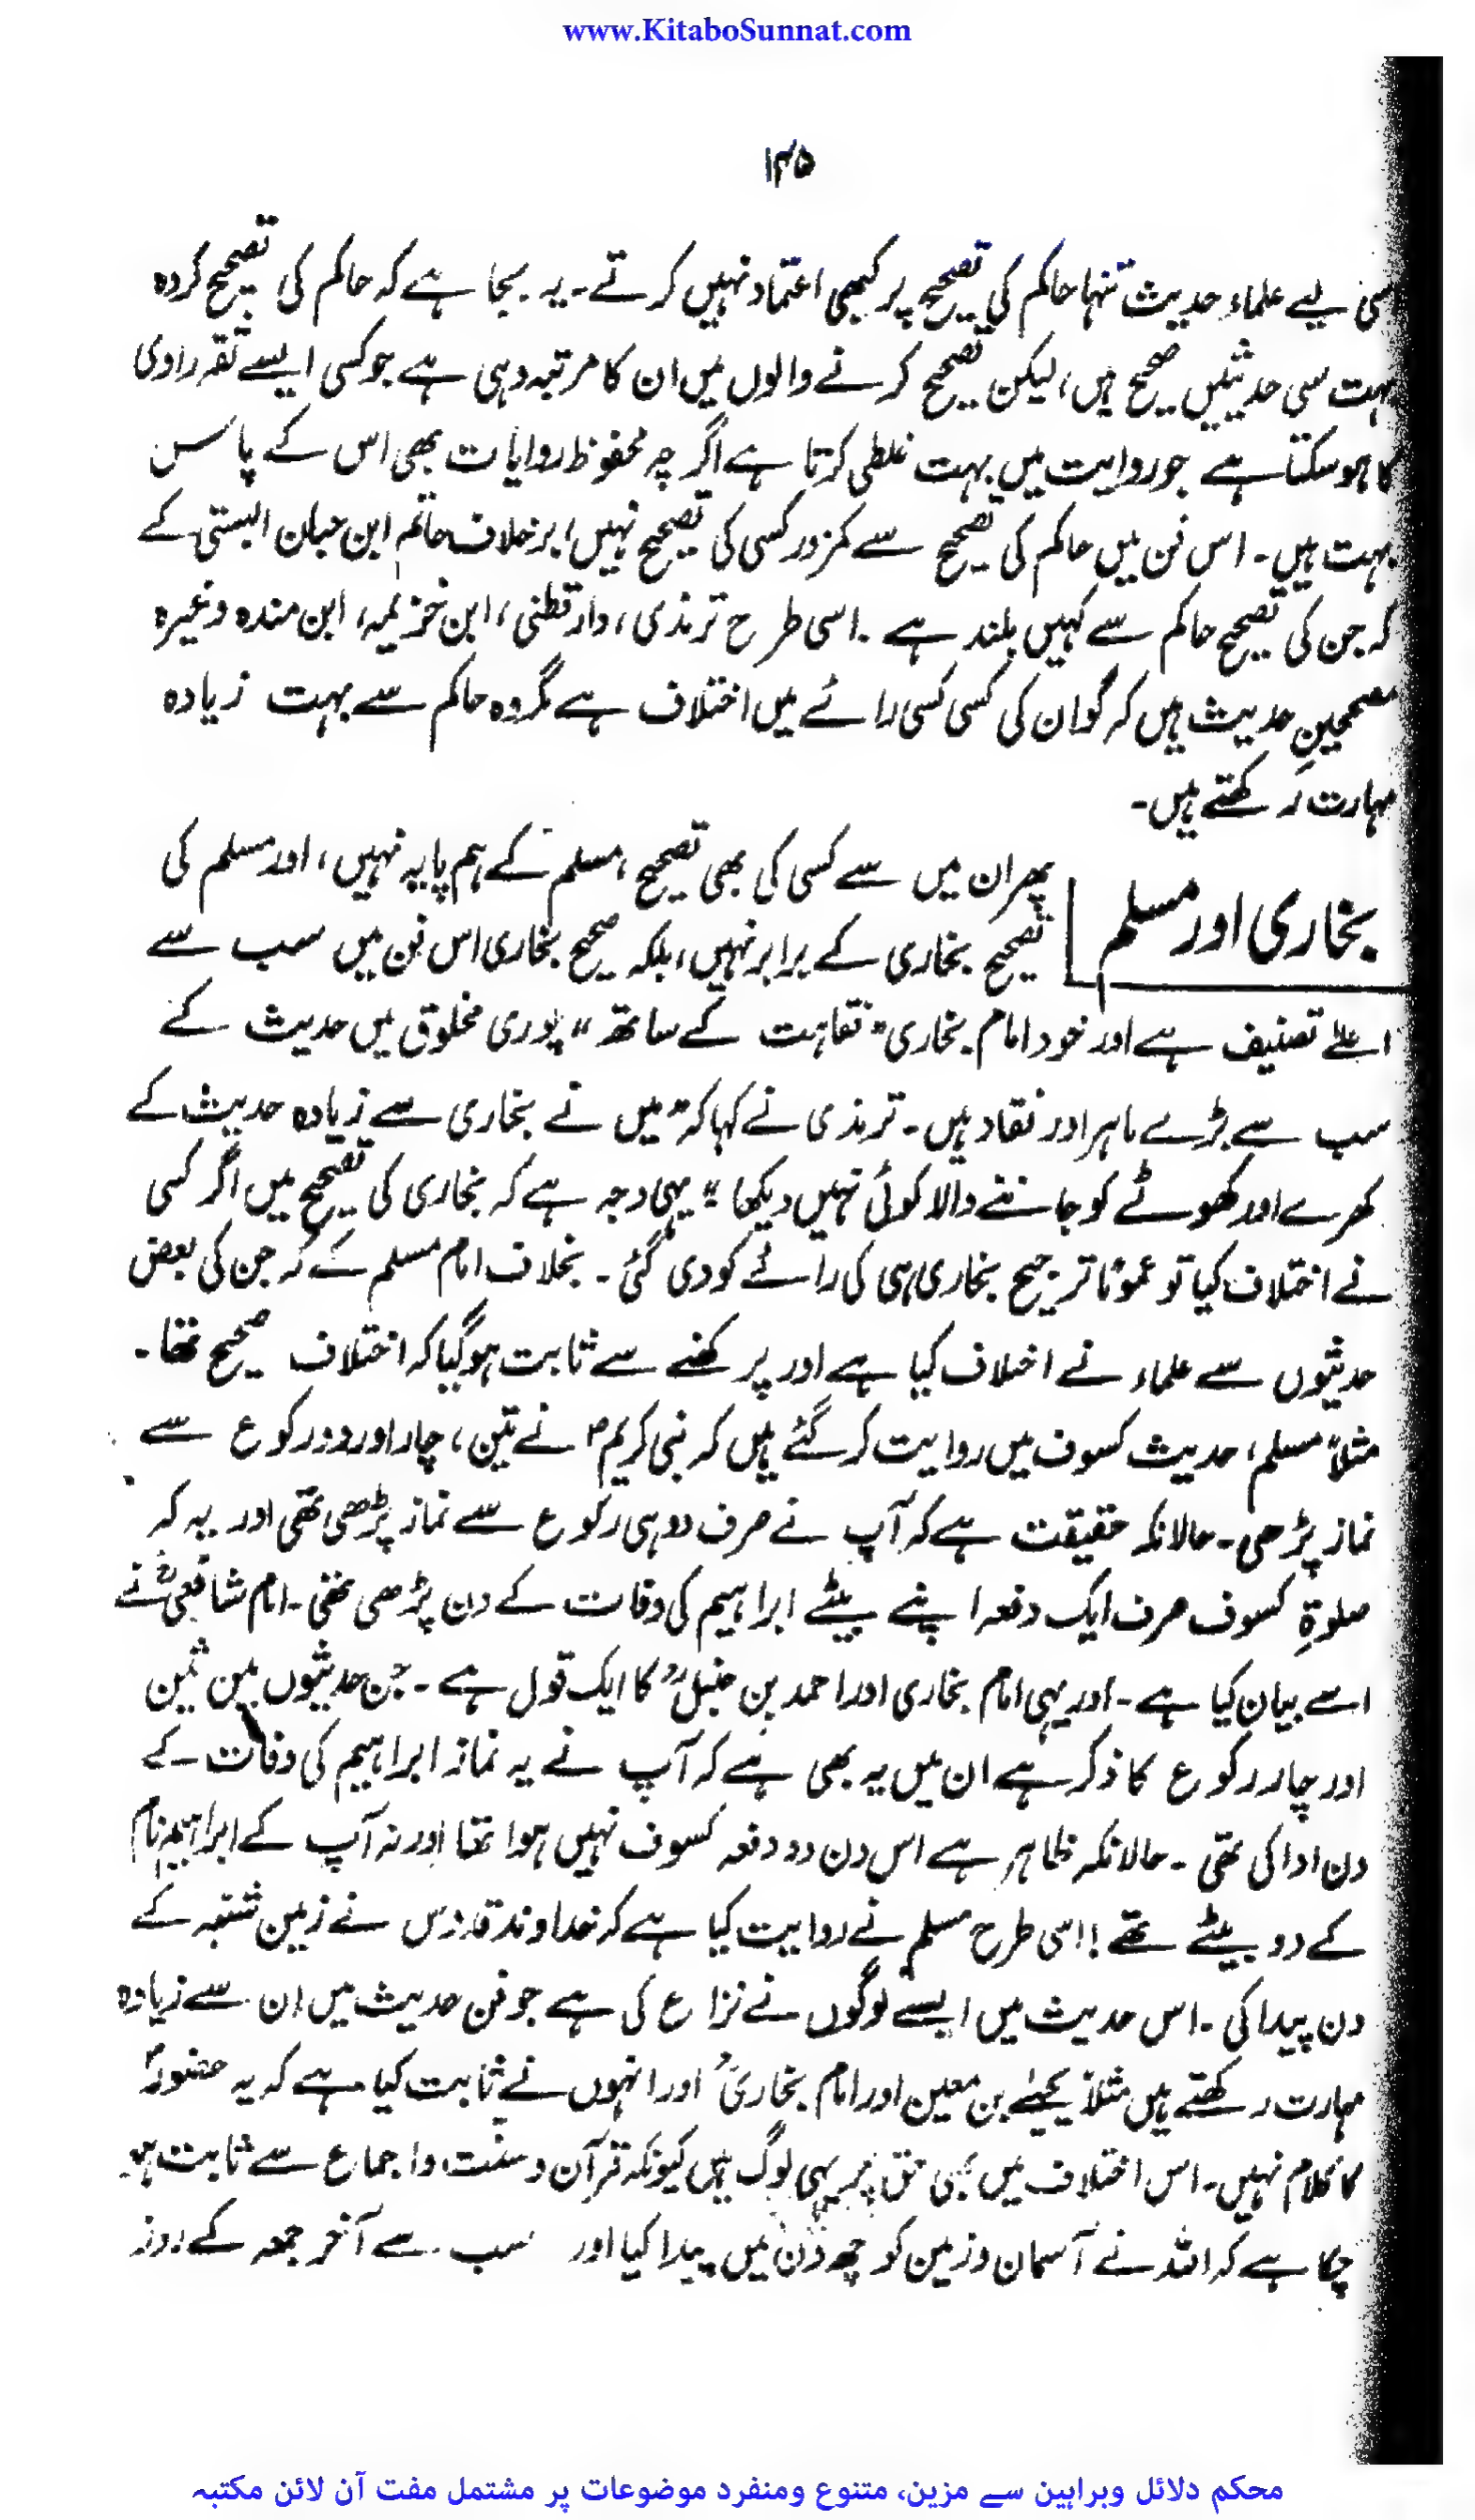 www.KitaboSunnat.com
۱۴۵
لیے علماء حدیث تنہا حاکم کی تصحیح پر کبھی اعتماد نہیں کرتے۔ یہ بجا ہے کہ حاکم کی تصحیح کردہ
بہت سی حدیثیں صحیح ہیں، لیکن تصحیح کرنے والوں میں ان کا مرتبہ وہی ہے جو کسی ایسے ثقہ راوی
کا ہو سکتا ہے جو روایت میں بہت غلطی کرتا ہے اگر چہ محفوظ روایات بھی اس کے پاس
بہت ہیں۔ اس فن میں حاکم کی تصحیح سے کمزور کسی کی تصحیح نہیں، برخلاف حاتم ابن حبان البستی کے
کہ جن کی تصحیح حاکم سے کہیں بلند ہے۔ اسی طرح ترمذی، دارقطنی، ابن خزیمہ، ابن مندہ وغیرہ
مصححینِ حدیث ہیں کہ گو ان کی کسی کسی رائے میں اختلاف ہے مگر وہ حاکم سے بہت زیادہ
مہارت رکھتے ہیں۔
بخاری اور مسلم
پھر ان میں سے کسی کی بھی تصحیح، مسلم کے ہم پایہ نہیں، اور مسلم کی
تصحیح بخاری کے برابر نہیں، بلکہ صحیح بخاری اس فن میں سب سے
اعلےٰ تصنیف ہے اور خود امام بخاری" تفاہت کے ساتھ" پوری مخلوق میں حدیث کے
سب سے بڑے ماہر اور نقاد ہیں۔ ترمذی نے کہا کہ "میں نے بخاری سے زیادہ حدیث کے
کھرے اور کھوٹے کو جاننے والا کوئی نہیں دیکھا" یہی وجہ ہے کہ بخاری کی تصحیح میں اگر کسی
نے اختلاف کیا تو عموماً ترجیح بخاری ہی کی رائے کو دی گئی۔ بخلاف امام مسلم کے کہ جن کی بعض
حدیثوں سے علماء نے اختلاف کیا ہے اور پرکھنے سے ثابت ہو گیا کہ اختلاف صحیح تھا۔
مثلاً مسلم، حدیث کسوف میں روایت کر گئے ہیں کہ نبی کریمؐ نے تین، چار اور دو رکوع سے
نماز پڑھی۔ حالانکہ حقیقت ہے کہ آپ نے صرف دو ہی رکوع سے نماز پڑھی تھی اور یہ کہ
صلوۃِ کسوف صرف ایک دفعہ اپنے بیٹے ابراہیم کی وفات کے دن پڑھی تھی۔ امام شافعیؒ نے
اسے بیان کیا ہے۔ اور یہی امام بخاری اور احمد بن حنبلؒ کا ایک قول ہے۔ جن حدیثوں میں تین
اور چار رکوع کا ذکر ہے ان میں یہ بھی ہے کہ آپ نے یہ نماز ابراہیم کی وفات کے
دن ادا کی تھی۔ حالانکہ ظاہر ہے اس دن دو دفعہ کسوف نہیں ہوا تھا اور نہ آپ کے ابراہیم نام
کے دو بیٹے تھے! اسی طرح مسلم نے روایت کیا ہے کہ خداوند قدوس نے زمین شنبہ کے
دن پیدا کی۔ اس حدیث میں ایسے لوگوں نے نزاع کی ہے جو فن حدیث میں ان سے زیادہ
مہارت رکھتے ہیں مثلاً یحیےٰ بن معین اور امام بخاریؒ اور انہوں نے ثابت کیا ہے کہ یہ حضورؐ
کا کلام نہیں۔ اس اختلاف میں بھی حق پر یہی لوگ ہیں کیونکہ قرآن و سنت و اجماع سے ثابت ہو
چکا ہے کہ اللہ نے آسمان و زمین کو چھ دن میں پیدا کیا اور سب سے آخر جمعہ کے روز
محکم دلائل وبراہین سے مزین، متنوع ومنفرد موضوعات پر مشتمل مفت آن لائن مکتبہ